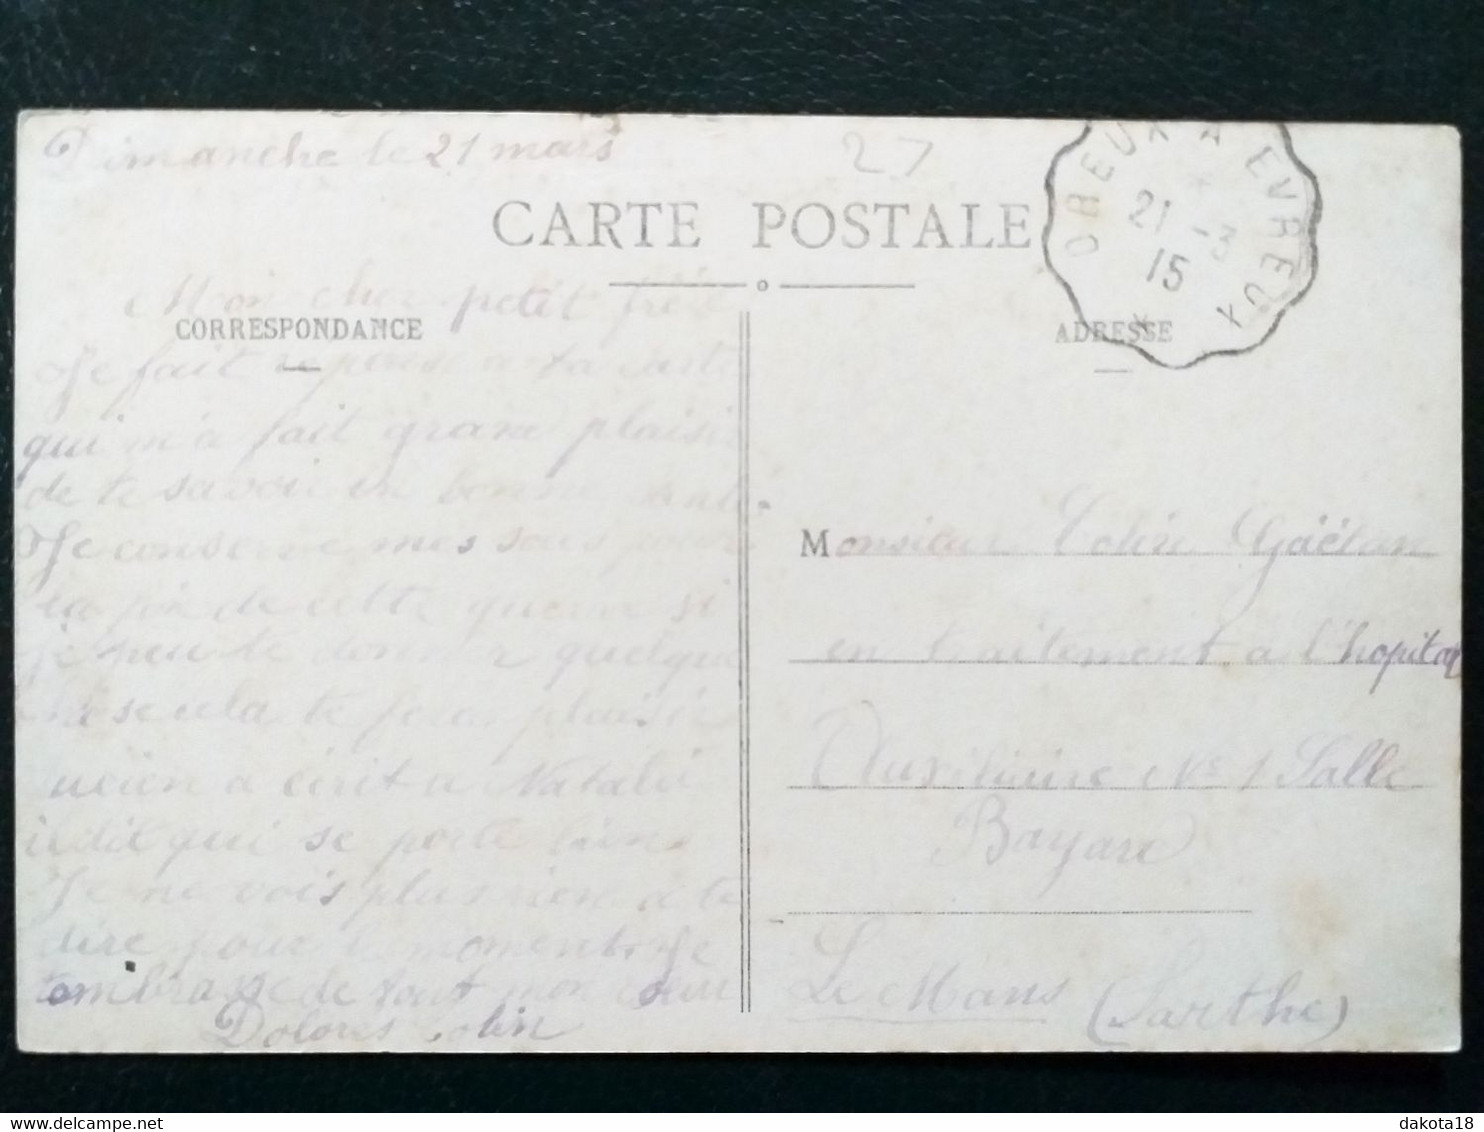 Dimanche le 21 mars
27
CARTE POSTALE
DREUX A EVREUX
21 - 3
15
CORRESPONDANCE
ADRESSE
Mon cher petit frè
Je fait reponse a ta carte
qui m'a fait grand plaisir
de te savoir en bonne santé.
Je conserve mes sous pour
la fin de cette guerre si
je peu te donner quelque
chose cela te fera plaisir
Lucien a écrit a Natalie
il dit qui se porte bien.
Je ne vois plus rien a te
dire pour le moment. Je
t'embrasse de tout mon cœur
Dolorès Colin
Monsieur Colin Gaëtan
en traitement a l'hopital
Auxiliaire No 1 Salle
Bayard
Le Mans (Sarthe)
dakota18